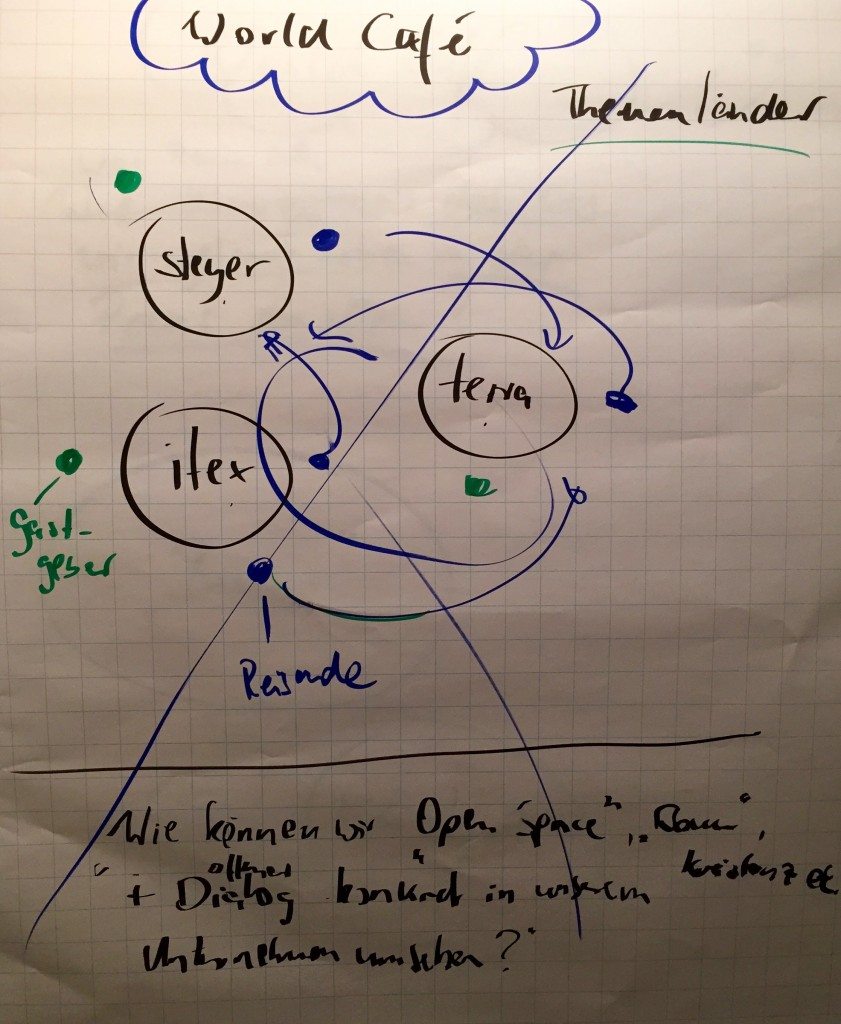 World Café
Themenländer
steyer
terra
itex
Gast-
geber
Reisende
Wie können wir "Open Space", „Raum",
+ offener Dialog konkret in unserem
Unternehmen umsetzen?"